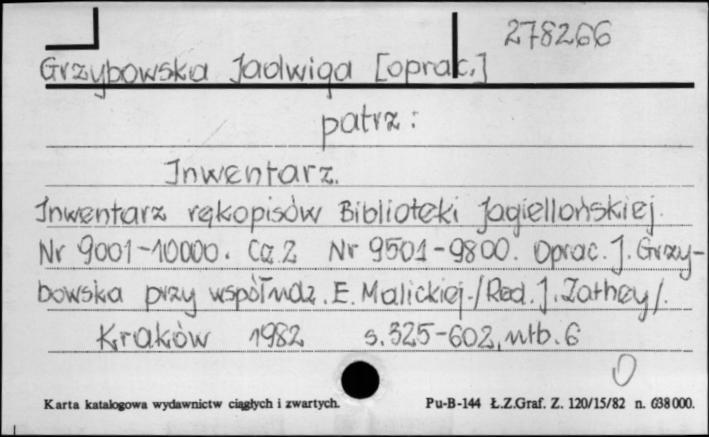 278266
Grzybowska Jadwiga [oprac.]
patrz:
Inwentarz.
Inwentarz rękopisów Biblioteki Jagiellońskiej.
Nr 9001-10000. Cz.2 Nr 9501-9800. Oprac. J. Grzy-
bowska przy współudz. E. Malickiej./Red. J. Zathey/.
Kraków 1982 s.325-602, nlb. 6
0
Karta katalogowa wydawnictw ciągłych i zwartych. Pu-B-144 Ł.Z.Graf. Z. 120/15/82 n. 638000.